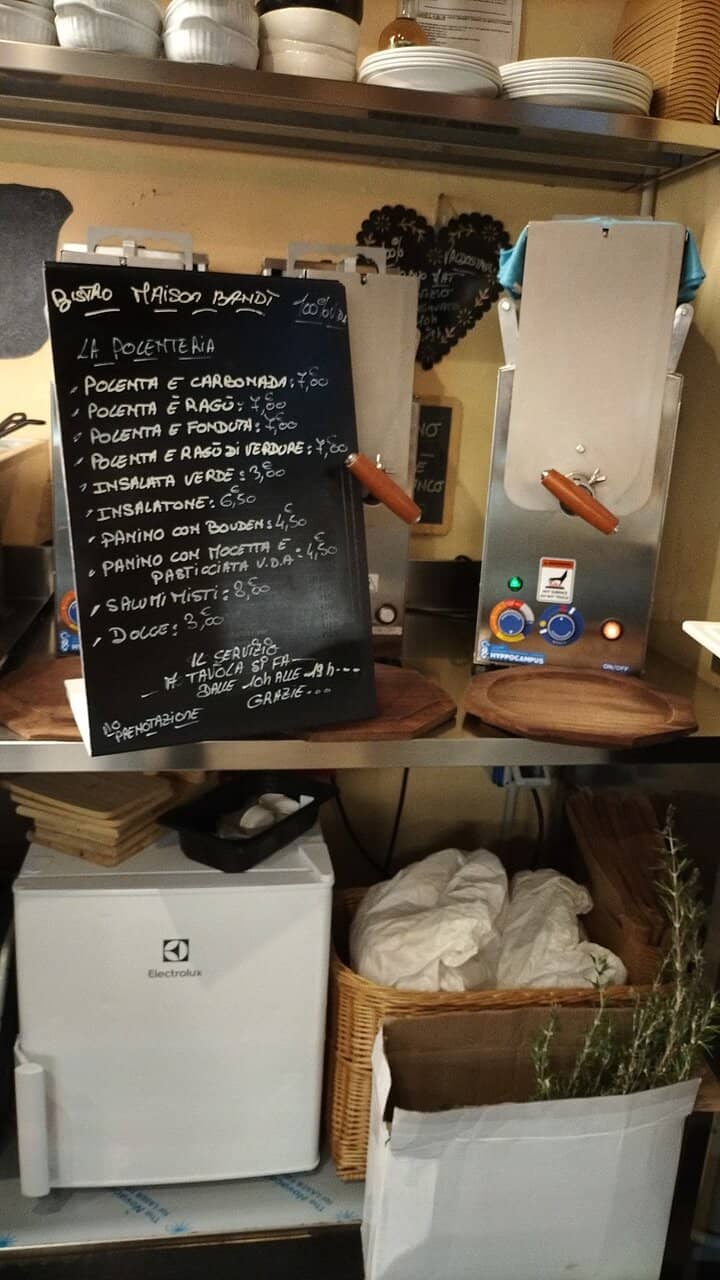 BISTRO MAISON BANDÌ 100%
LA POLENTERIA
POLENTA E CARBONADA: 7,00
POLENTA E RAGÙ: 7,00
POLENTA E FONDUTA: 7,00
POLENTA E RAGÙ DI VERDURE: 7,00
INSALATA VERDE: 3,00
INSALATONE: 6,50
PANINO CON BOUDEN: 4,50
PANINO CON MOCETTA E : 4,50
PASTICCIATA V.D.A
SALUMI MISTI: 8,00
DOLCE: 3,00
IL SERVIZIO
A TAVOLA SI FA
DALLE 10h ALLE 19h---
GRAZIE...
NO
PRENOTAZIONE
HYPPOCAMPUS
ON/OFF
Electrolux